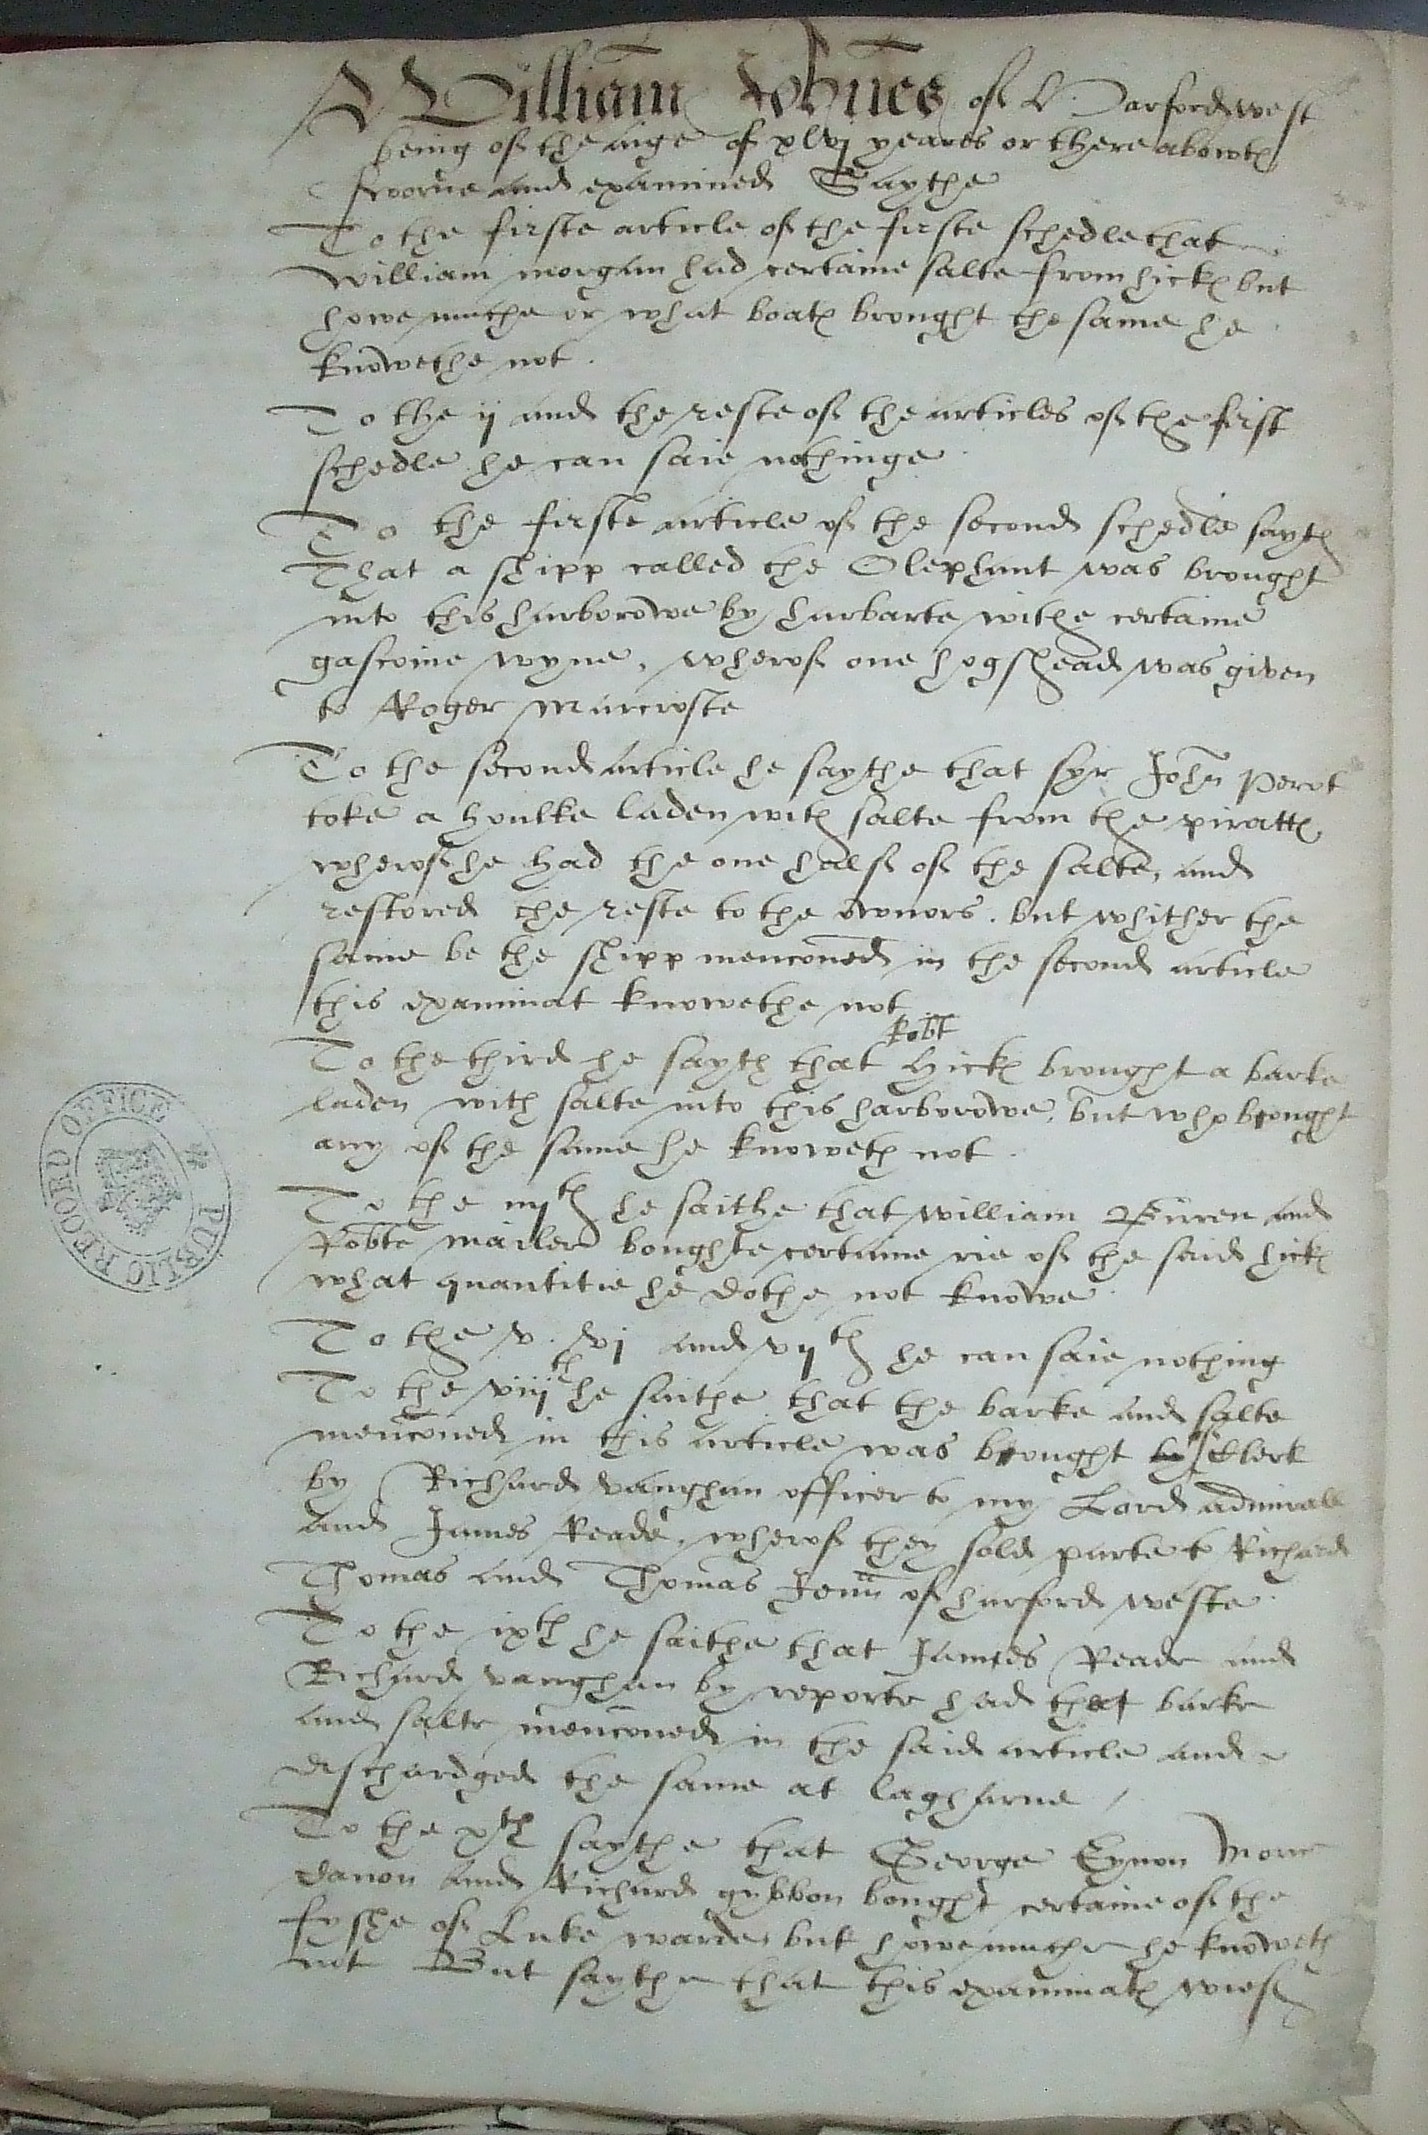 William Johnes of Harfordwest
being of the aige of xlvj yeares or there abowtes
sworne and examined Saythe
To the firste article of the firste schedle that
William morgan had certaine salte from hickes but
howe muche or what boates brought the same he
knowethe not.
To the ij and the reste of the articles of the first
schedle he can saie nothinge
To the firste article of the second schedle sayth
That a shipp called the Olephant was brought
into this harborowe by hurbarte withe certaine
gascoine wyne, wherof one hogshead was given
to Roger Marcrofte
To the second article he saythe that syr John Perot
toke a houlke laden with salte from the pirattes
wherof he had the one half of the salte, and
restored the reste to the owners. but whither the
same be the shipp menconed in the second article
this examinat knowethe not
To the third he sayth that Robt Hickes brought a barke
laden with salte into this harborowe, but who bought
any of the same he knoweth not.
To the iiijth he saithe that William Buren and
Robte mailer boughte certaine rie of the said hickes
what quantitie he dothe not knowe
To the v. vj and vijth he can saie nothing
To the viijth he saithe that the barke and salte
menconed in this article was bought by of Clerk
by Richard vaughan officer to my Lord admirall
and James Reade, wherof they sold parte to Richard
Thomas and Thomas Jenn of harford weste
To the ixth he saithe that James Reade and
Richard vaughan by reporte had that barke
and salte menconed in the said article and
dischardged the same at lagharne /
To the xth saythe that George Eynon Morrice
danon and Richard gybbon bought certaine of the
fyshe of Luke warde, but howe muche he knoweth
not But saythe that this examinates wief
PUBLIC RECORD OFFICE